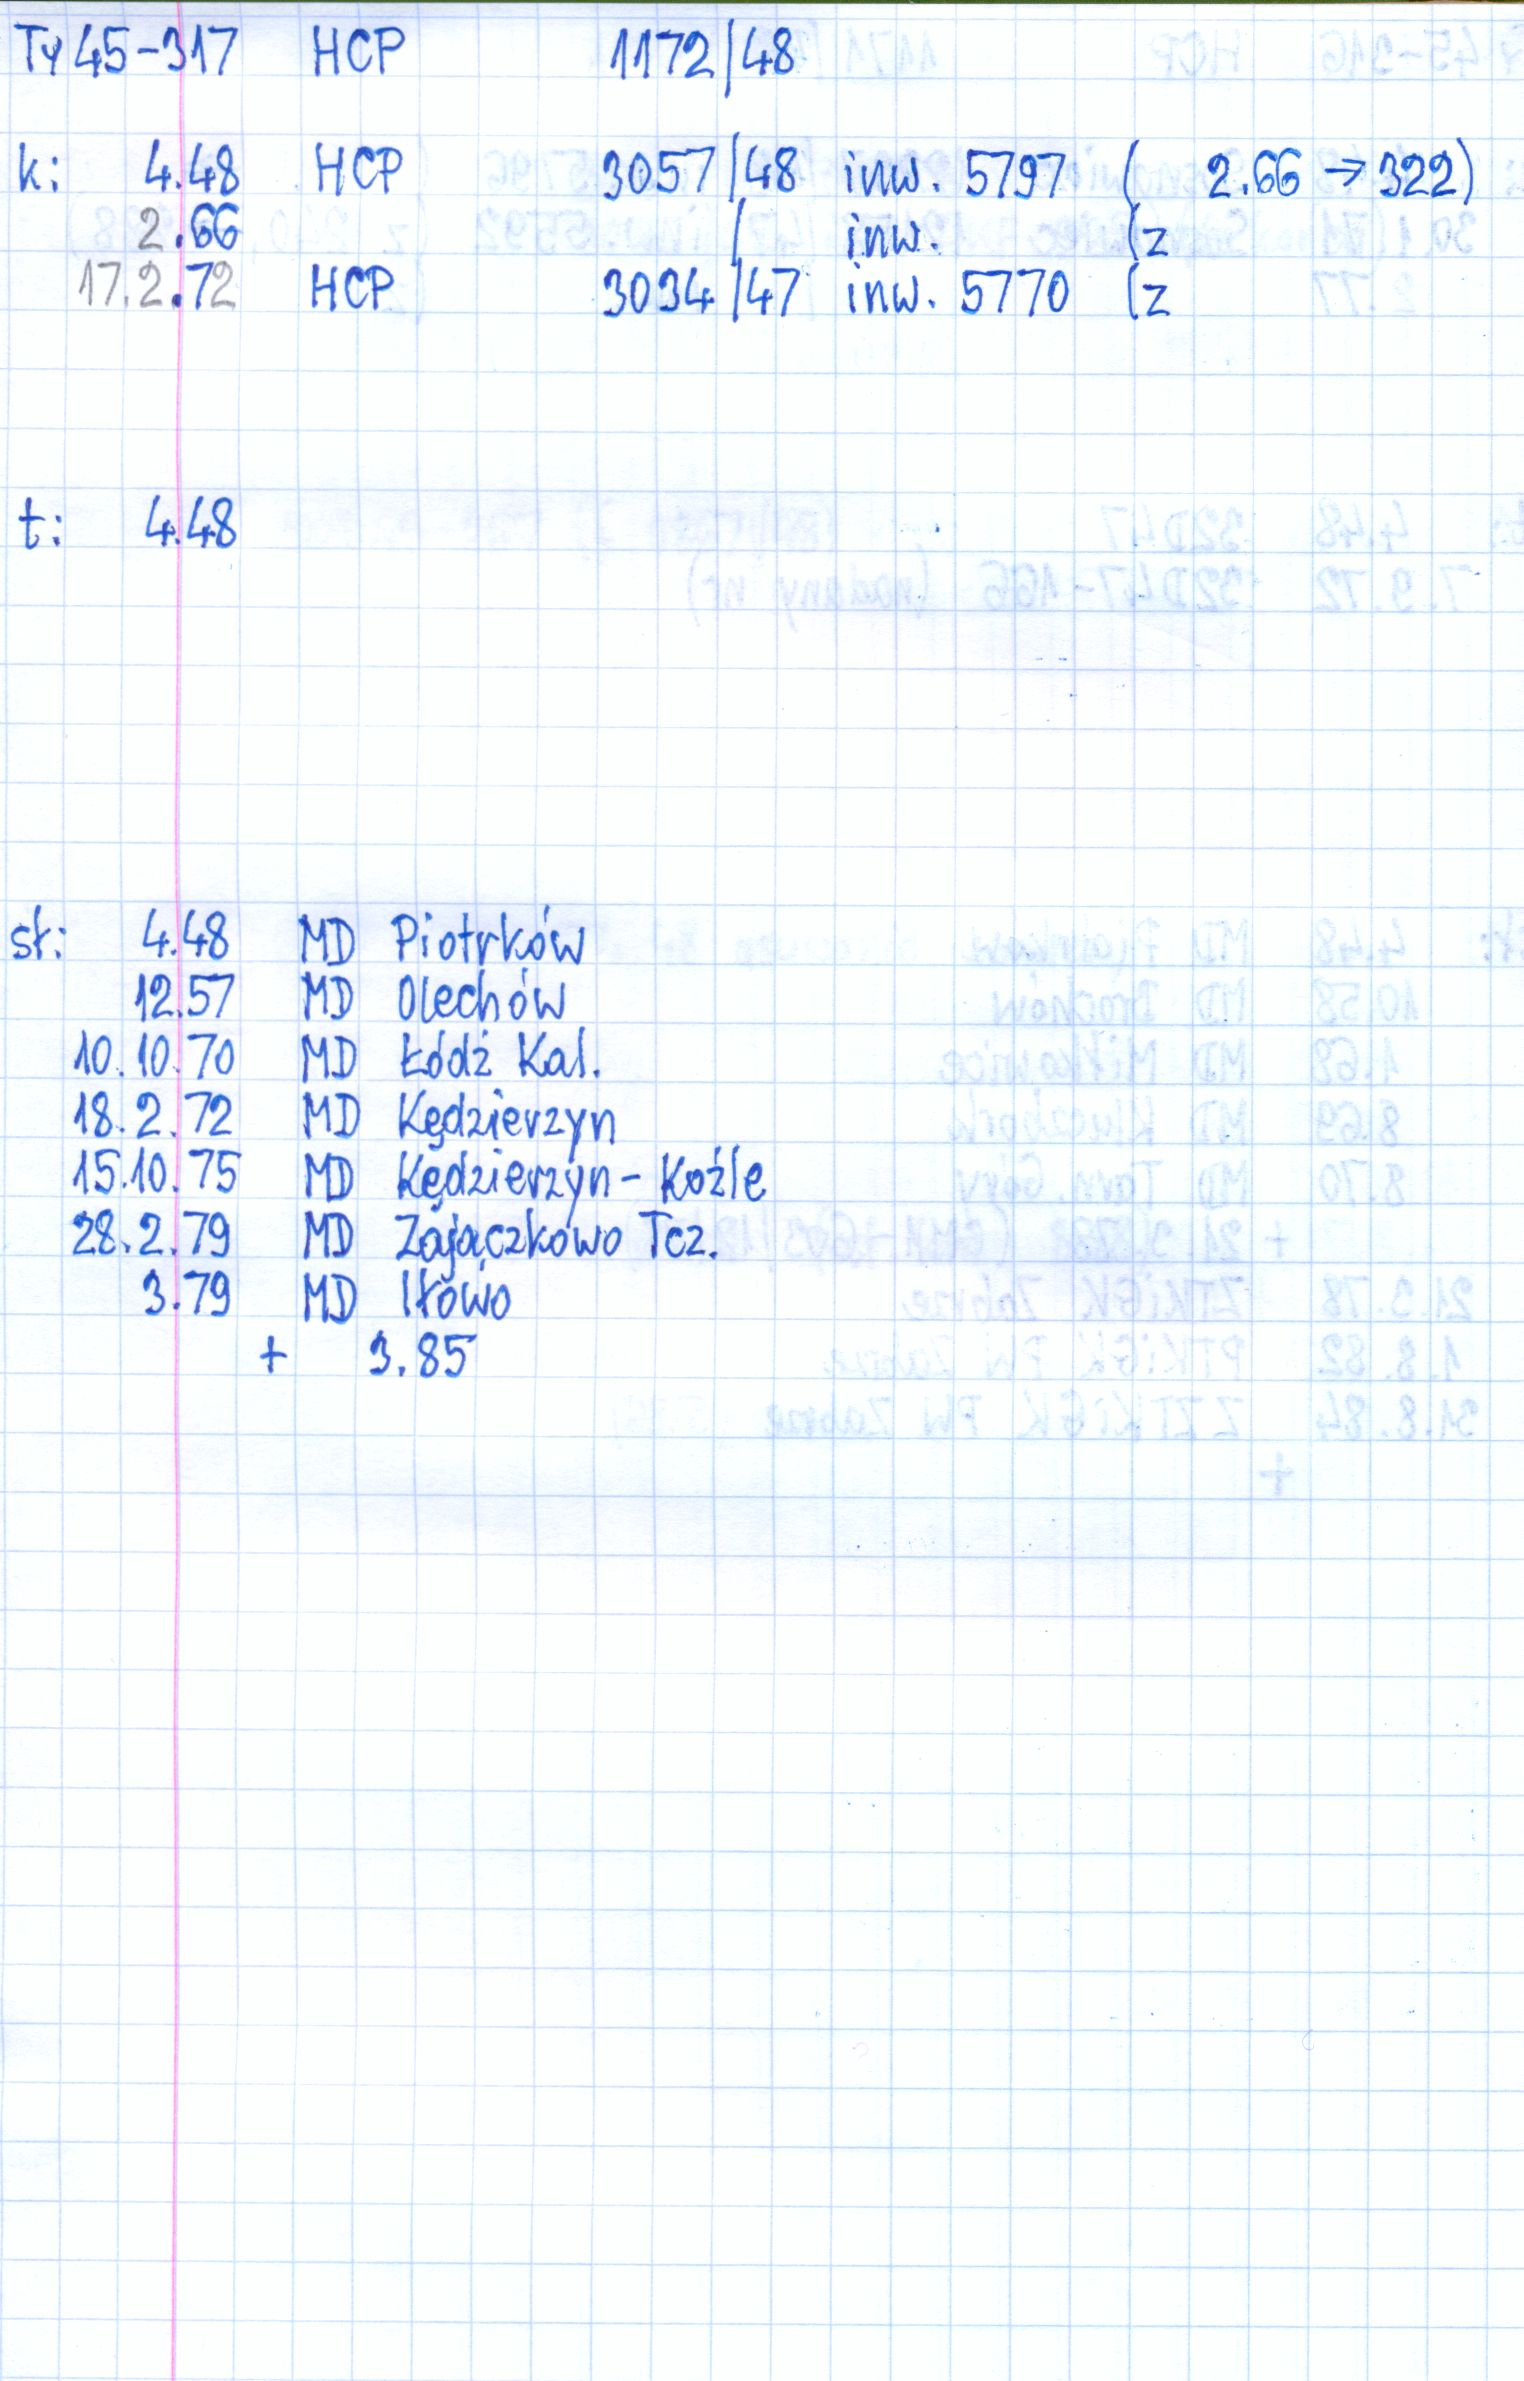 Ty45-317 HCP 1172/48
k: 4.48 HCP 3057/48 inw. 5797 ( 2.66 → 322)
2.66 / inw. (z
17.2.72 HCP 3034/47 inw. 5770 (z
t: 4.48
st: 4.48 MD Piotrków
12.57 MD Olechów
10.10.70 MD Łódź Kal.
18.2.72 MD Kędzierzyn
15.10.75 MD Kędzierzyn-Koźle
28.2.79 MD Zajączkowo Tcz.
3.79 MD Iłowo
+ 3.85